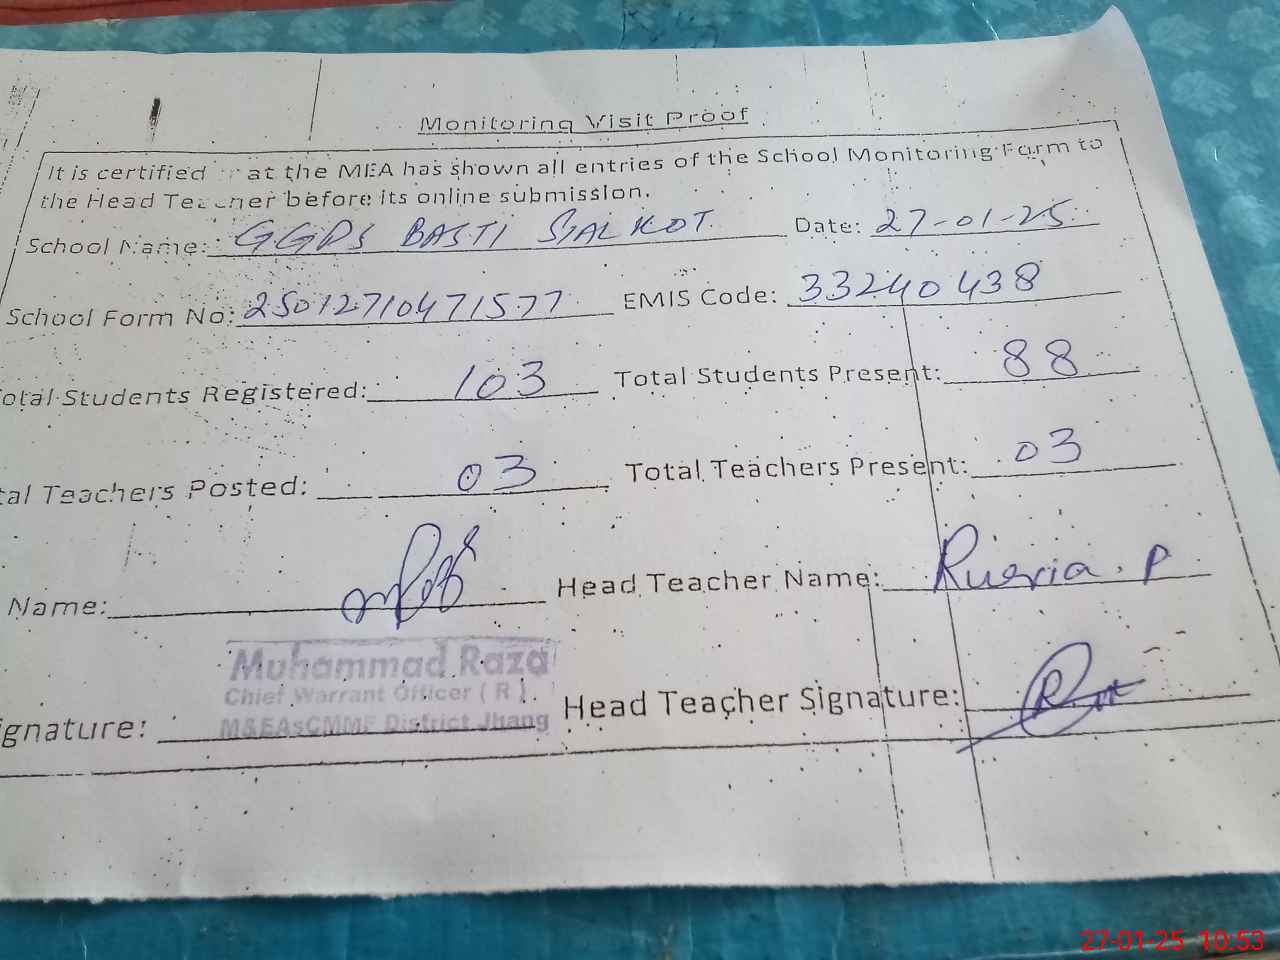 Monitoring Visit Proof
It is certified at the MEA has shown all entries of the School Monitoring Form to
the Head Teacher before its online submission.
School Name: GGPS BASTI SIALKOT. Date: 27-01-25
School Form No: 25012710471577 EMIS Code: 33240438
otal Students Registered: 103 Total Students Present: 88
tal Teachers Posted: 03 Total Teachers Present: 03
Name: Head Teacher Name: P
Muhammad Raza
Chief Warrant Officer ( R ).
M&EAsCMMF District Jhang
gnature: Head Teacher Signature:
27-01-25 10:53